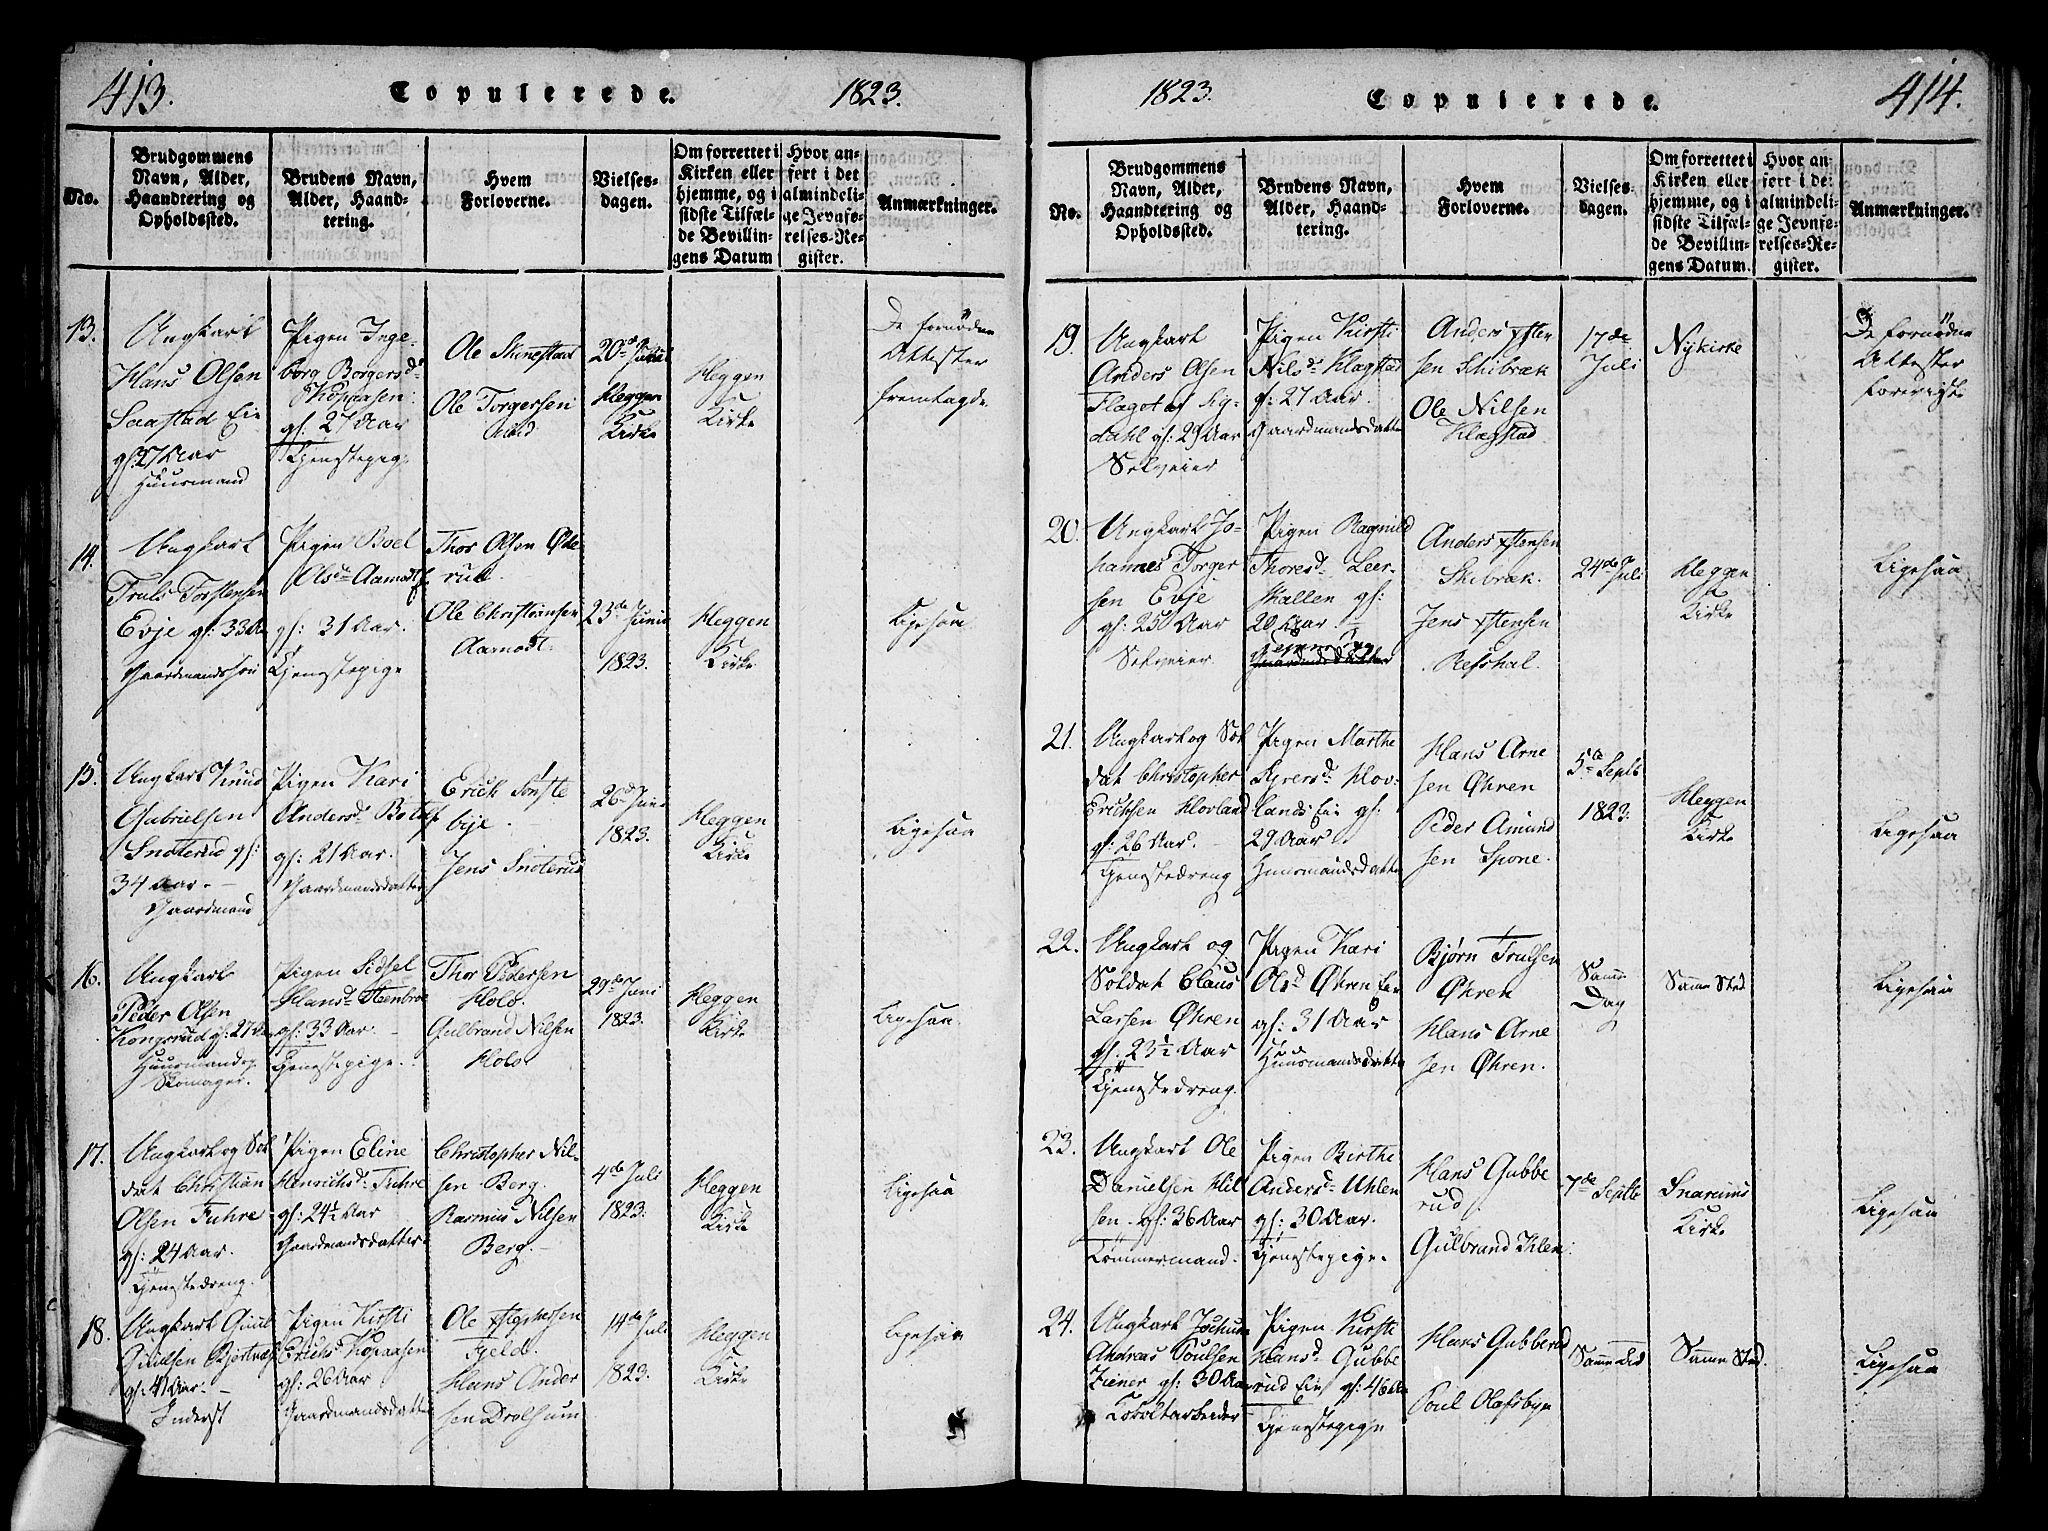 413.
Copulerede.
1823.
No.
Brudgommens Navn, Alder, Haandtering og Opholdssted.
Brudens Navn, Alder, Haandtering.
Hvem Forloverne.
Vielses-dagen.
Om forrettet i Kirken eller hjemme, og i sidste Tilfælde Bevillingens Datum
Hvor anført i det almindelige Jevnførelses-Register.
Anmærkninger.
13.
Ungkarl
Hans Olsen
Saastad Eie
gl: 27 Aar
Huusmand
Pigen Inge-
borg Borgersd
Kopaasen
gl: 27 Aar
Tjenestepige
Ole Skinstad
Ole Torgersen
20de Junii
Heggen
Kirke
Heggen
Kirke
De fornødne
Attester
fremlagde
14.
Ungkarl
Truls Torstensen
Evje gl: 33 Aar
Gaardmandssøn
Pigen Boel
Olsd Aamodt
gl: 31 Aar.
Tjenestepige
Thor Olsen Øde-
rud
Ole Christensen
Aamodt
23de Junii
1823.
Heggen
Kirke
Ligesaa
15.
Ungkarl Knud
Gabrielsen
Snoterud gl:
34 Aar. -
Gaardmand
Pigen Kari
Andersd
gl: 21 Aar.
Gaardmandsdatter
Erich Sønste-
bye.
Jens Snoterud
26de Juni
1823.
Heggen
Kirke
Ligesaa
16.
Ungkarl
Peder Olsen
Kongsrud gl: 27 Aar
Huusmand og
Skomager.
Pigen Sidsel
Hansd Stenbroe
gl: 33 Aar. -
Tjenestepige.
Thor Pedersen
Holo.
Gulbrand Nilsen
Holo
29de Juni
1823.
Heggen
Kirke
Ligesaa.
17.
Ungkarl og Sol-
dat Christian
Olsen Fuhre
gl: 24 Aar.
Tjenestedreng.
Pigen Eline
Henrichsd Fuhre
gl: 24½ Aar
Gaardmandsdatter
Christopher Nil-
sen Berg.
Rasmus Nilsen
Berg. -
4de Juli
1823.
Heggen
Kirke
Ligesaa
18.
Ungkarl Guul
Guulsen
gl: 41 Aar. -
Inderst
Pigen Kirsti
Erichsd Kopaasen
gl: 26 Aar
Gaardmandsdatter
Ole
Fjeld.
Hans Ander
sen Drolsum
14de Juli
1823.
Heggen
Kirke
Ligesaa
1823.
Copulerede.
414.
No.
Brudgommens Navn, Alder, Haandtering og Opholdssted.
Brudens Navn, Alder, Haandtering.
Hvem Forloverne.
Vielses-dagen.
Om forrettet i Kirken eller hjemme, og i sidste Tilfælde Bevillingens Datum.
Hvor anført i det almindelige Jevnførelses-Register.
Anmærkninger.
19.
Ungkarl
Anders Olsen
Flagot af Sig-
dahl gl: 29 Aar
Selveier
Pigen Kirsti
Nilsd Hlagstad
gl: 27 Aar.
Gaardmandsdatter
Anders Isten
sen Skibræk
Ole Nilsen
Hlagstad.
17de
Juli
Nykirke
De fornødne
Attester
foreviste
20.
Ungkarl Jo-
hannes Torger
sen Evje
gl: 25 Aar
Selveier.
Pigen Ragnild
Thoresd Leer-
skallen gl:
20 Aar. -
Anders Istensen
Skibræk.
Jens Istensen
Refshal.
24de Juli
Heggen
Kirke
Ligesaa
21.
Ungkarl og Sol-
dat Christopher
Erichsen Hovland
gl: 26 Aar. -
Tjenestedreng
Pigen Marthe
Syversd Hov-
lands Eie gl:
29 Aar
Huusmandsdatter
Hans Arne
sen Øhren
Peder Amund
sen Spone.
5te Septb
1823.
Heggen
Kirke
Ligesaa
22.
Ungkarl og
Soldat Claus
Larsen Øhren
gl: 23½ Aar
Tjenestedreng.
Pigen Kari
Olsd Øhren Eie
gl: 31 Aar
Huusmandsdatter
Bjørn Trulsen
Øhren
Hans Arne
sen Øhren.
Samme
Dag
Samme Sted
Ligesaa
23.
Ungkarl Ole
Danielsen Hil
sen. gl: 36 Aar
Tømmermand.
Pigen Birthe
Andersd Uhlen
gl: 30 Aar.
Tjenestepige.
Hans Gubbe
rud
Gulbrand Ihlen
7de Septbr
Snarums
Kirke
Ligesaa
24.
Ungkarl Jochum
Andreas Poulsen
Ziener gl: 30 Aar
Koboltarbeider
Pigen Kirsti
Hansd Gubbe
rud Eie gl: 46 Aar
Tjenestepige
Hans Gubberud
Poul Olafsbye
Samme Tid
Samme Sted.
Ligesaa